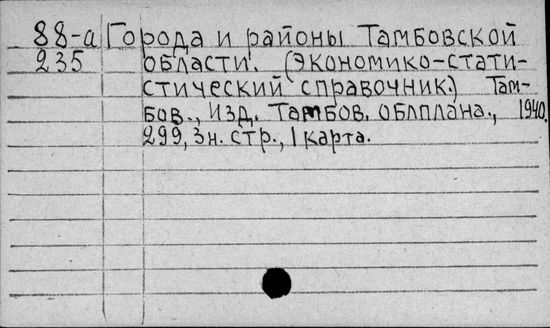 88-а Города и районы Тамбовской
235 области. (Экономико-стати-
стический справочник.) Там-
бов., Изд. Тамбов. облплана., 1940.
299, 3н. стр., 1 карта.